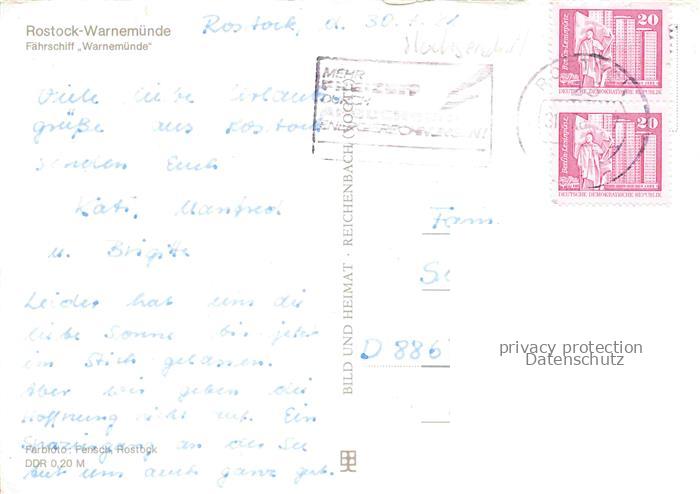 Rostock-Warnemünde
Fährschiff „Warnemünde"
Rostock, d. 30.
MEHR
Viele liebe Urlaubs
grüße aus Rostock
senden Euch
Kati, Manfred
u. Brigitte
Leider hat uns die
liebe Sonne bis jetzt
im Stich gelassen.
Aber wir geben die
Hoffnung nicht auf. Ein
Spaziergang an der See
tut uns auch ganz gut.
Farbfoto: Pensch, Rostock
DDR 0,20 M
BILD UND HEIMAT · REICHENBACH (VOGTL)
Berlin-Leninplatz 20
DEUTSCHE DEMOKRATISCHE REPUBLIK
Berlin-Leninplatz 20
DEUTSCHE DEMOKRATISCHE REPUBLIK
Fam.
D 886
privacy protection
Datenschutz